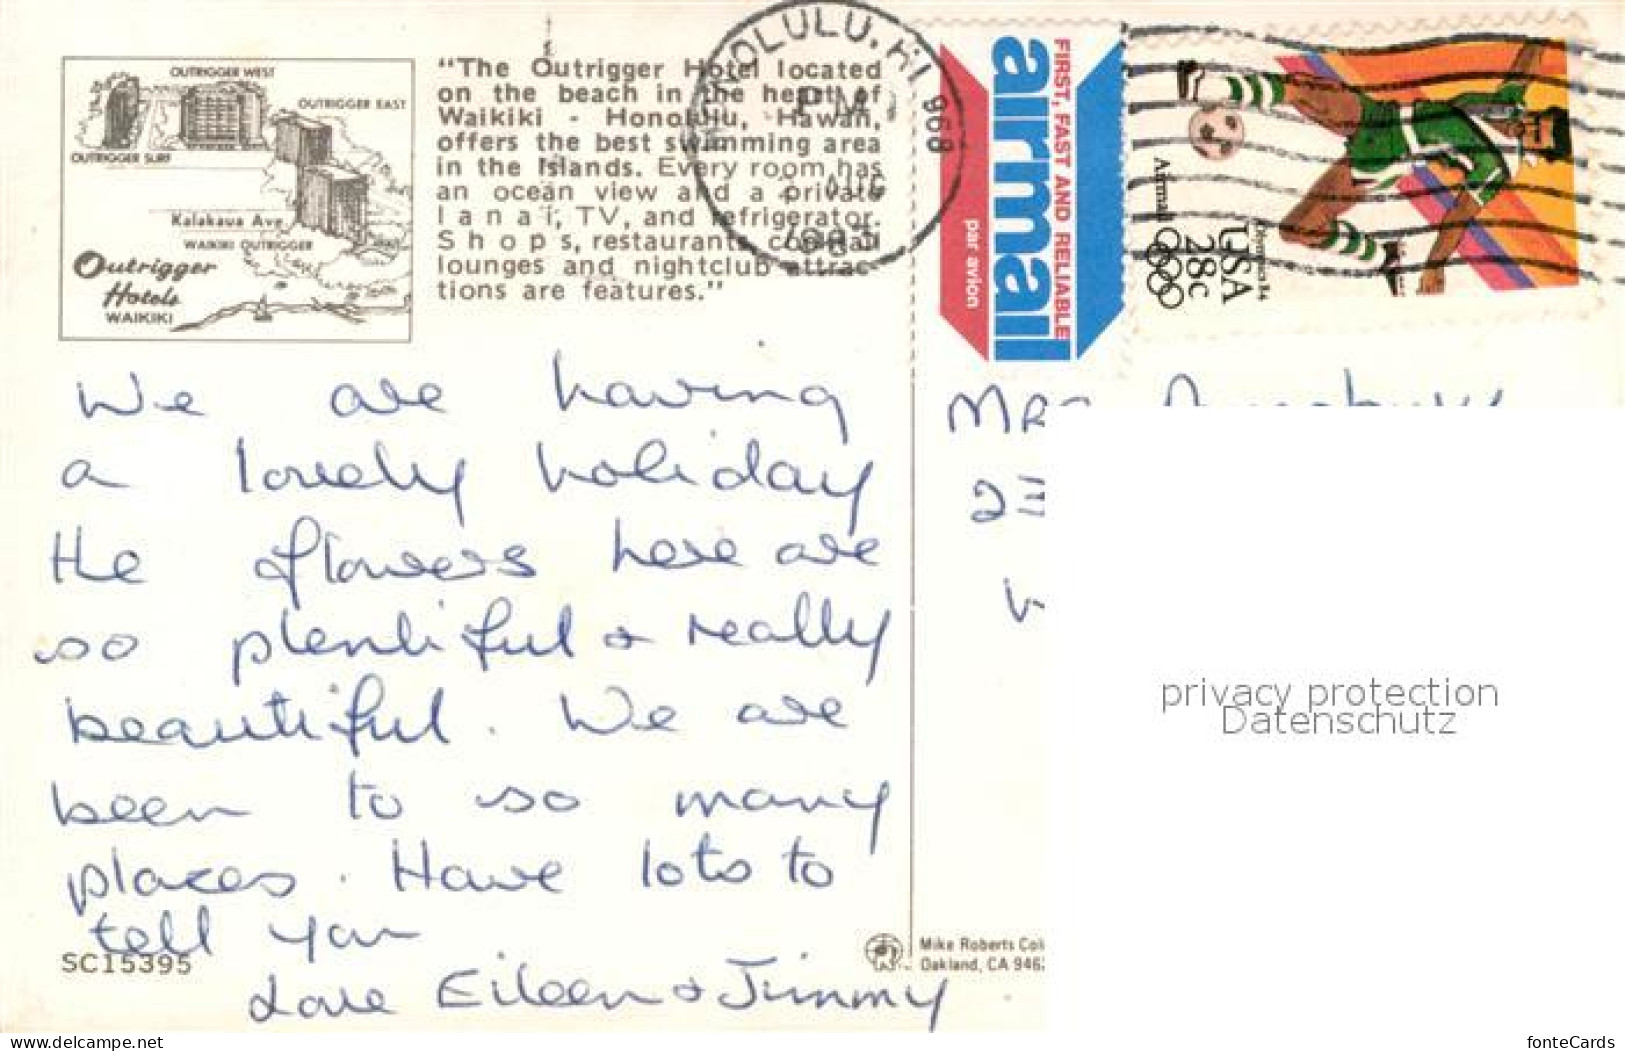 OUTRIGGER WEST
OUTRIGGER EAST
OUTRIGGER SURF
Kalakaua Ave
WAIKIKI OUTRIGGER
Outrigger
Hotels
WAIKIKI
"The Outrigger Hotel located
on the beach in the heart of
Waikiki - Honolulu, Hawaii,
offers the best swimming area
in the Islands. Every room has
an ocean view and a private
lanai, TV, and refrigerator.
Shops, restaurants, cocktail
lounges and nightclub attrac-
tions are features."
HONOLULU, HI 968
PM
1983
FIRST, FAST AND RELIABLE
airmail
par avion
Airmail
USA
28c
We are having
a lovely holiday
the flowers here are
so plentiful & really
beautiful. We are
been to so many
places. Have lots to
tell you
Love Eileen & Jimmy
SC15395
Mrs
Mike Roberts Col
Oakland, CA 946
privacy protection
Datenschutz
www.delcampe.net
my
fonteCards